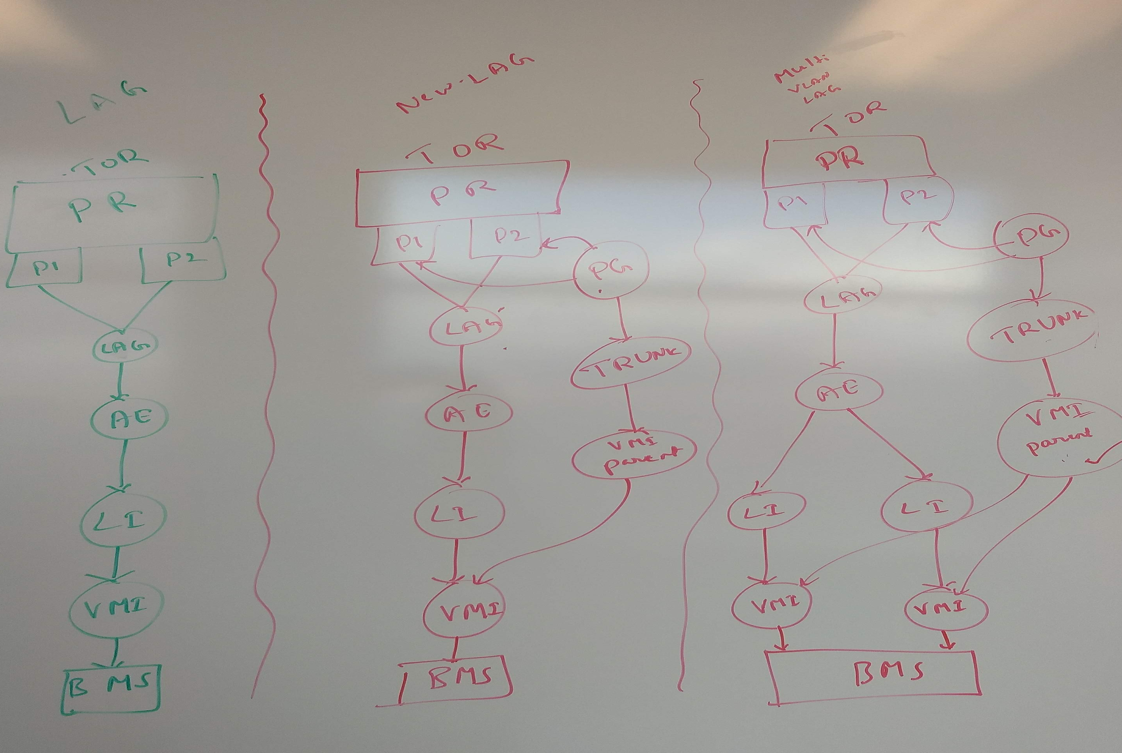 LAG
TOR
PR
P1
P2
LAG
AE
LI
VMI
BMS
New-LAG
TOR
PR
P1
P2
PG
LAG
TRUNK
AE
VMI
parent
LI
VMI
BMS
Multi
VLAN
LAG
TOR
PR
P1
P2
PG
LAG
TRUNK
AE
VMI
parent
LI
LI
VMI
VMI
BMS